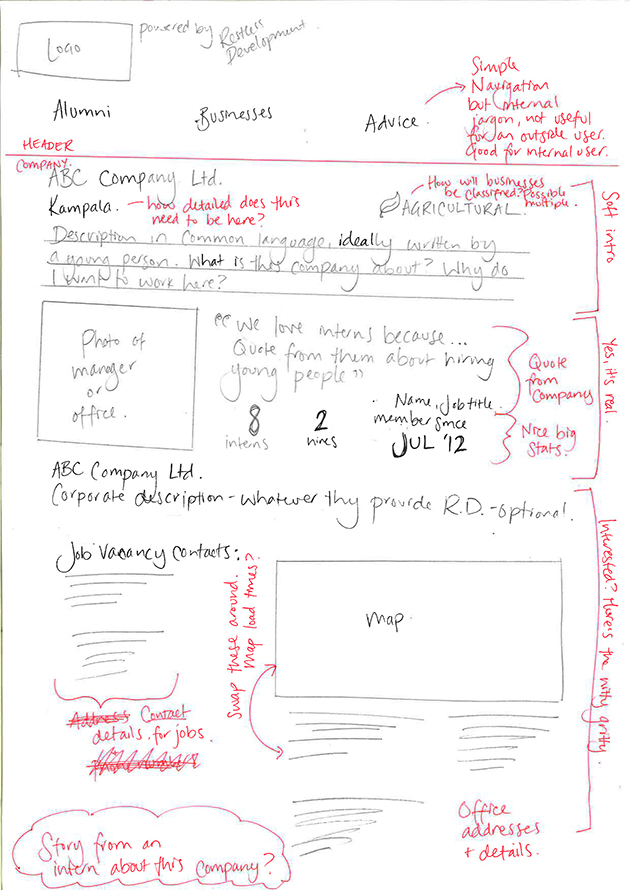 Logo
powered by Restless
Development.
Simple
Navigation
but internal
jargon, not useful
for an outside user.
Good for internal user.
Alumni
Businesses
Advice
HEADER
COMPANY.
ABC Company Ltd.
Kampala.
how detailed does this
need to be here?
How will businesses
be classified? Possible
multiple.
AGRICULTURAL.
Description in common language, ideally written by
a young person. What is this company about? Why do
I want to work here?
Soft intro
Photo of
manager
or
office.
"We love interns because...
Quote from them about hiring
young people"
Name, Job title.
8
interns
2
hires
member since
JUL '12
Quote
from
Company
Nice big
stats.
Yes, it's real
ABC Company Ltd.
Corporate description - whatever thy provide R.D. - optional.
Job Vacancy Contacts:
Swap these around.
Map load times?
Map.
Interested? Here's the nitty gritty.
Address Contact
details for jobs.
Office
addresses
+ details.
Story from an
intern about this company?